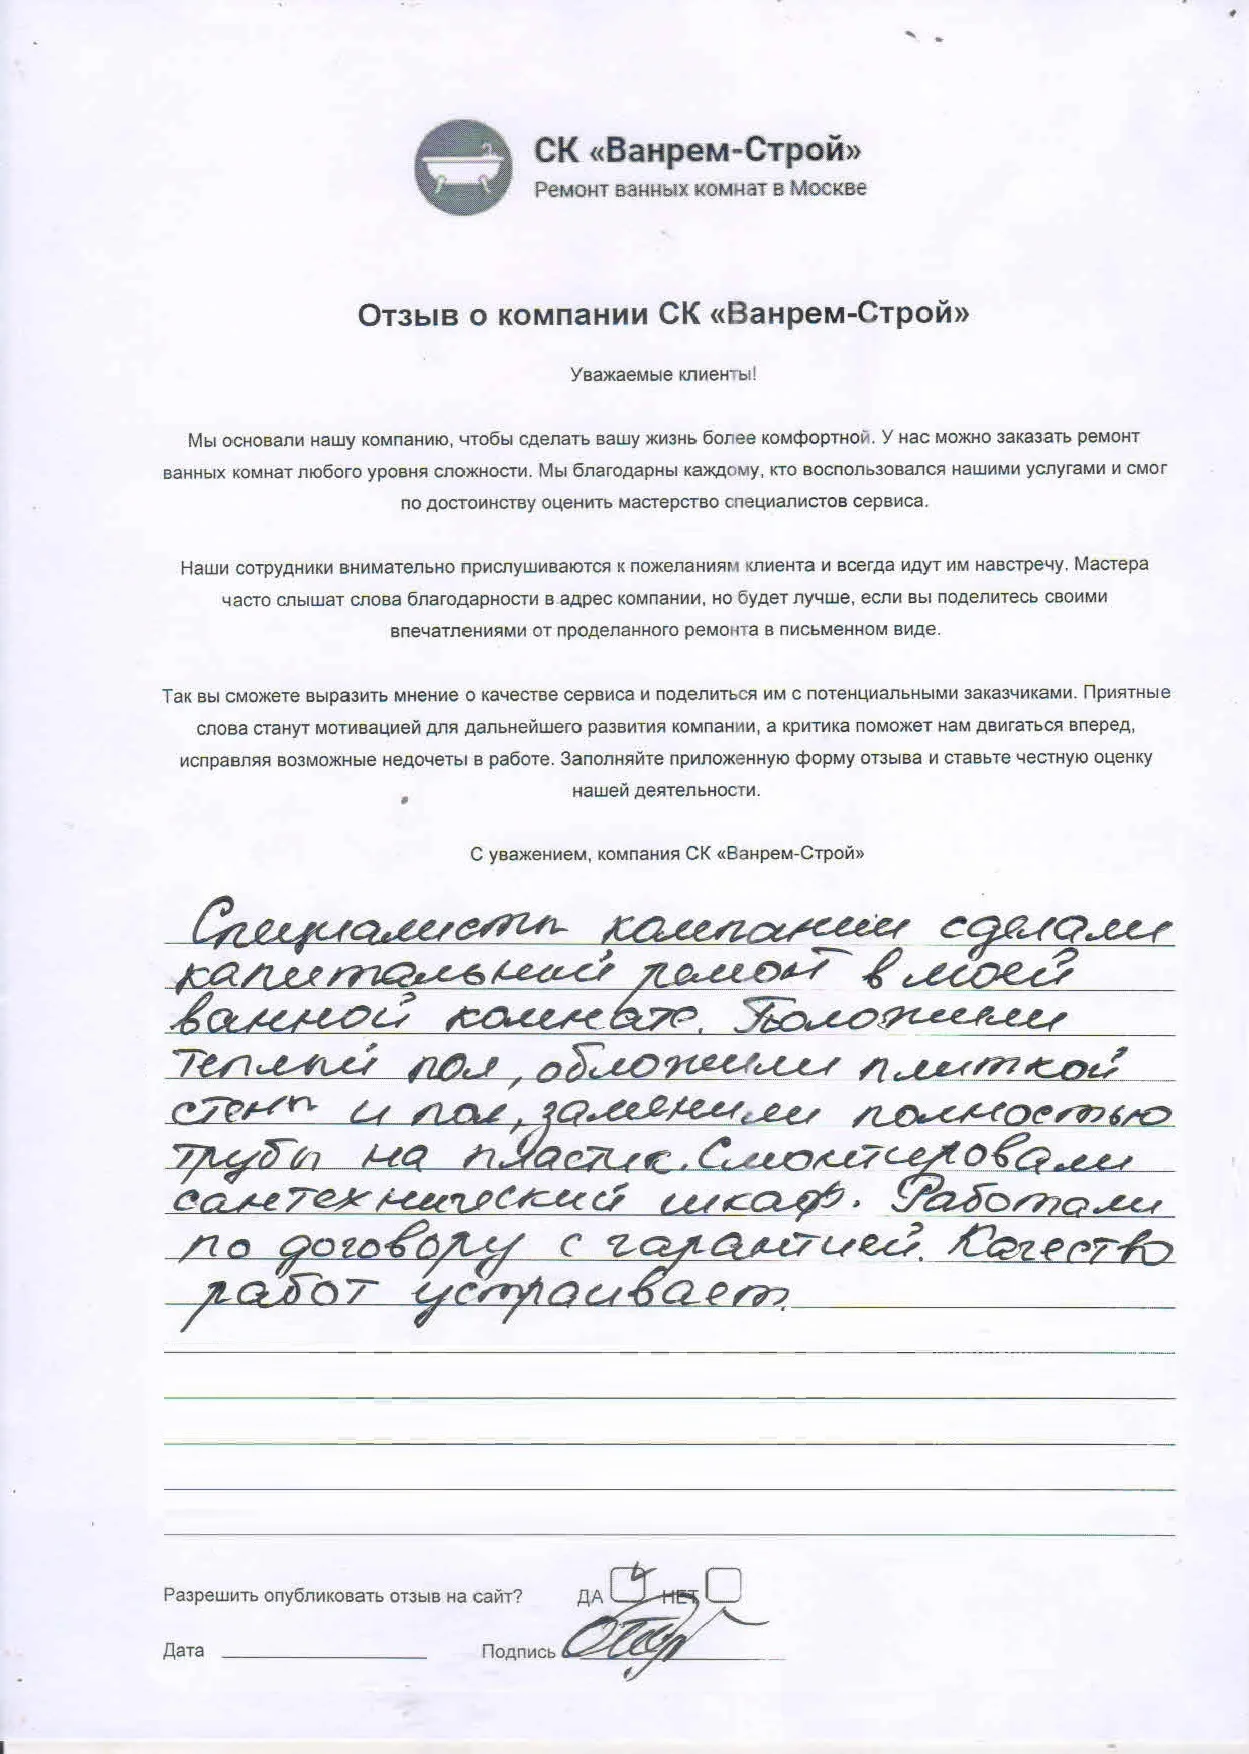 СК «Ванрем-Строй»
Ремонт ванных комнат в Москве
Отзыв о компании СК «Ванрем-Строй»
Уважаемые клиенты!
Мы основали нашу компанию, чтобы сделать вашу жизнь более комфортной. У нас можно заказать ремонт
ванных комнат любого уровня сложности. Мы благодарны каждому, кто воспользовался нашими услугами и смог
по достоинству оценить мастерство специалистов сервиса.
Наши сотрудники внимательно прислушиваются к пожеланиям клиента и всегда идут им навстречу. Мастера
часто слышат слова благодарности в адрес компании, но будет лучше, если вы поделитесь своими
впечатлениями от проделанного ремонта в письменном виде.
Так вы сможете выразить мнение о качестве сервиса и поделиться им с потенциальными заказчиками. Приятные
слова станут мотивацией для дальнейшего развития компании, а критика поможет нам двигаться вперед,
исправляя возможные недочеты в работе. Заполняйте приложенную форму отзыва и ставьте честную оценку
нашей деятельности.
С уважением, компания СК «Ванрем-Строй»
Специалисты компании сделали
капитальный ремонт в моей
ванной комнате. Положили
теплый пол, обложили плиткой
стены и пол, заменили полностью
трубы на пластик. Смонтировали
сантехнический шкаф. Работали
по договору с гарантией. Качество
работ устраивает.
Разрешить опубликовать отзыв на сайт? ДА НЕТ
Дата Подпись